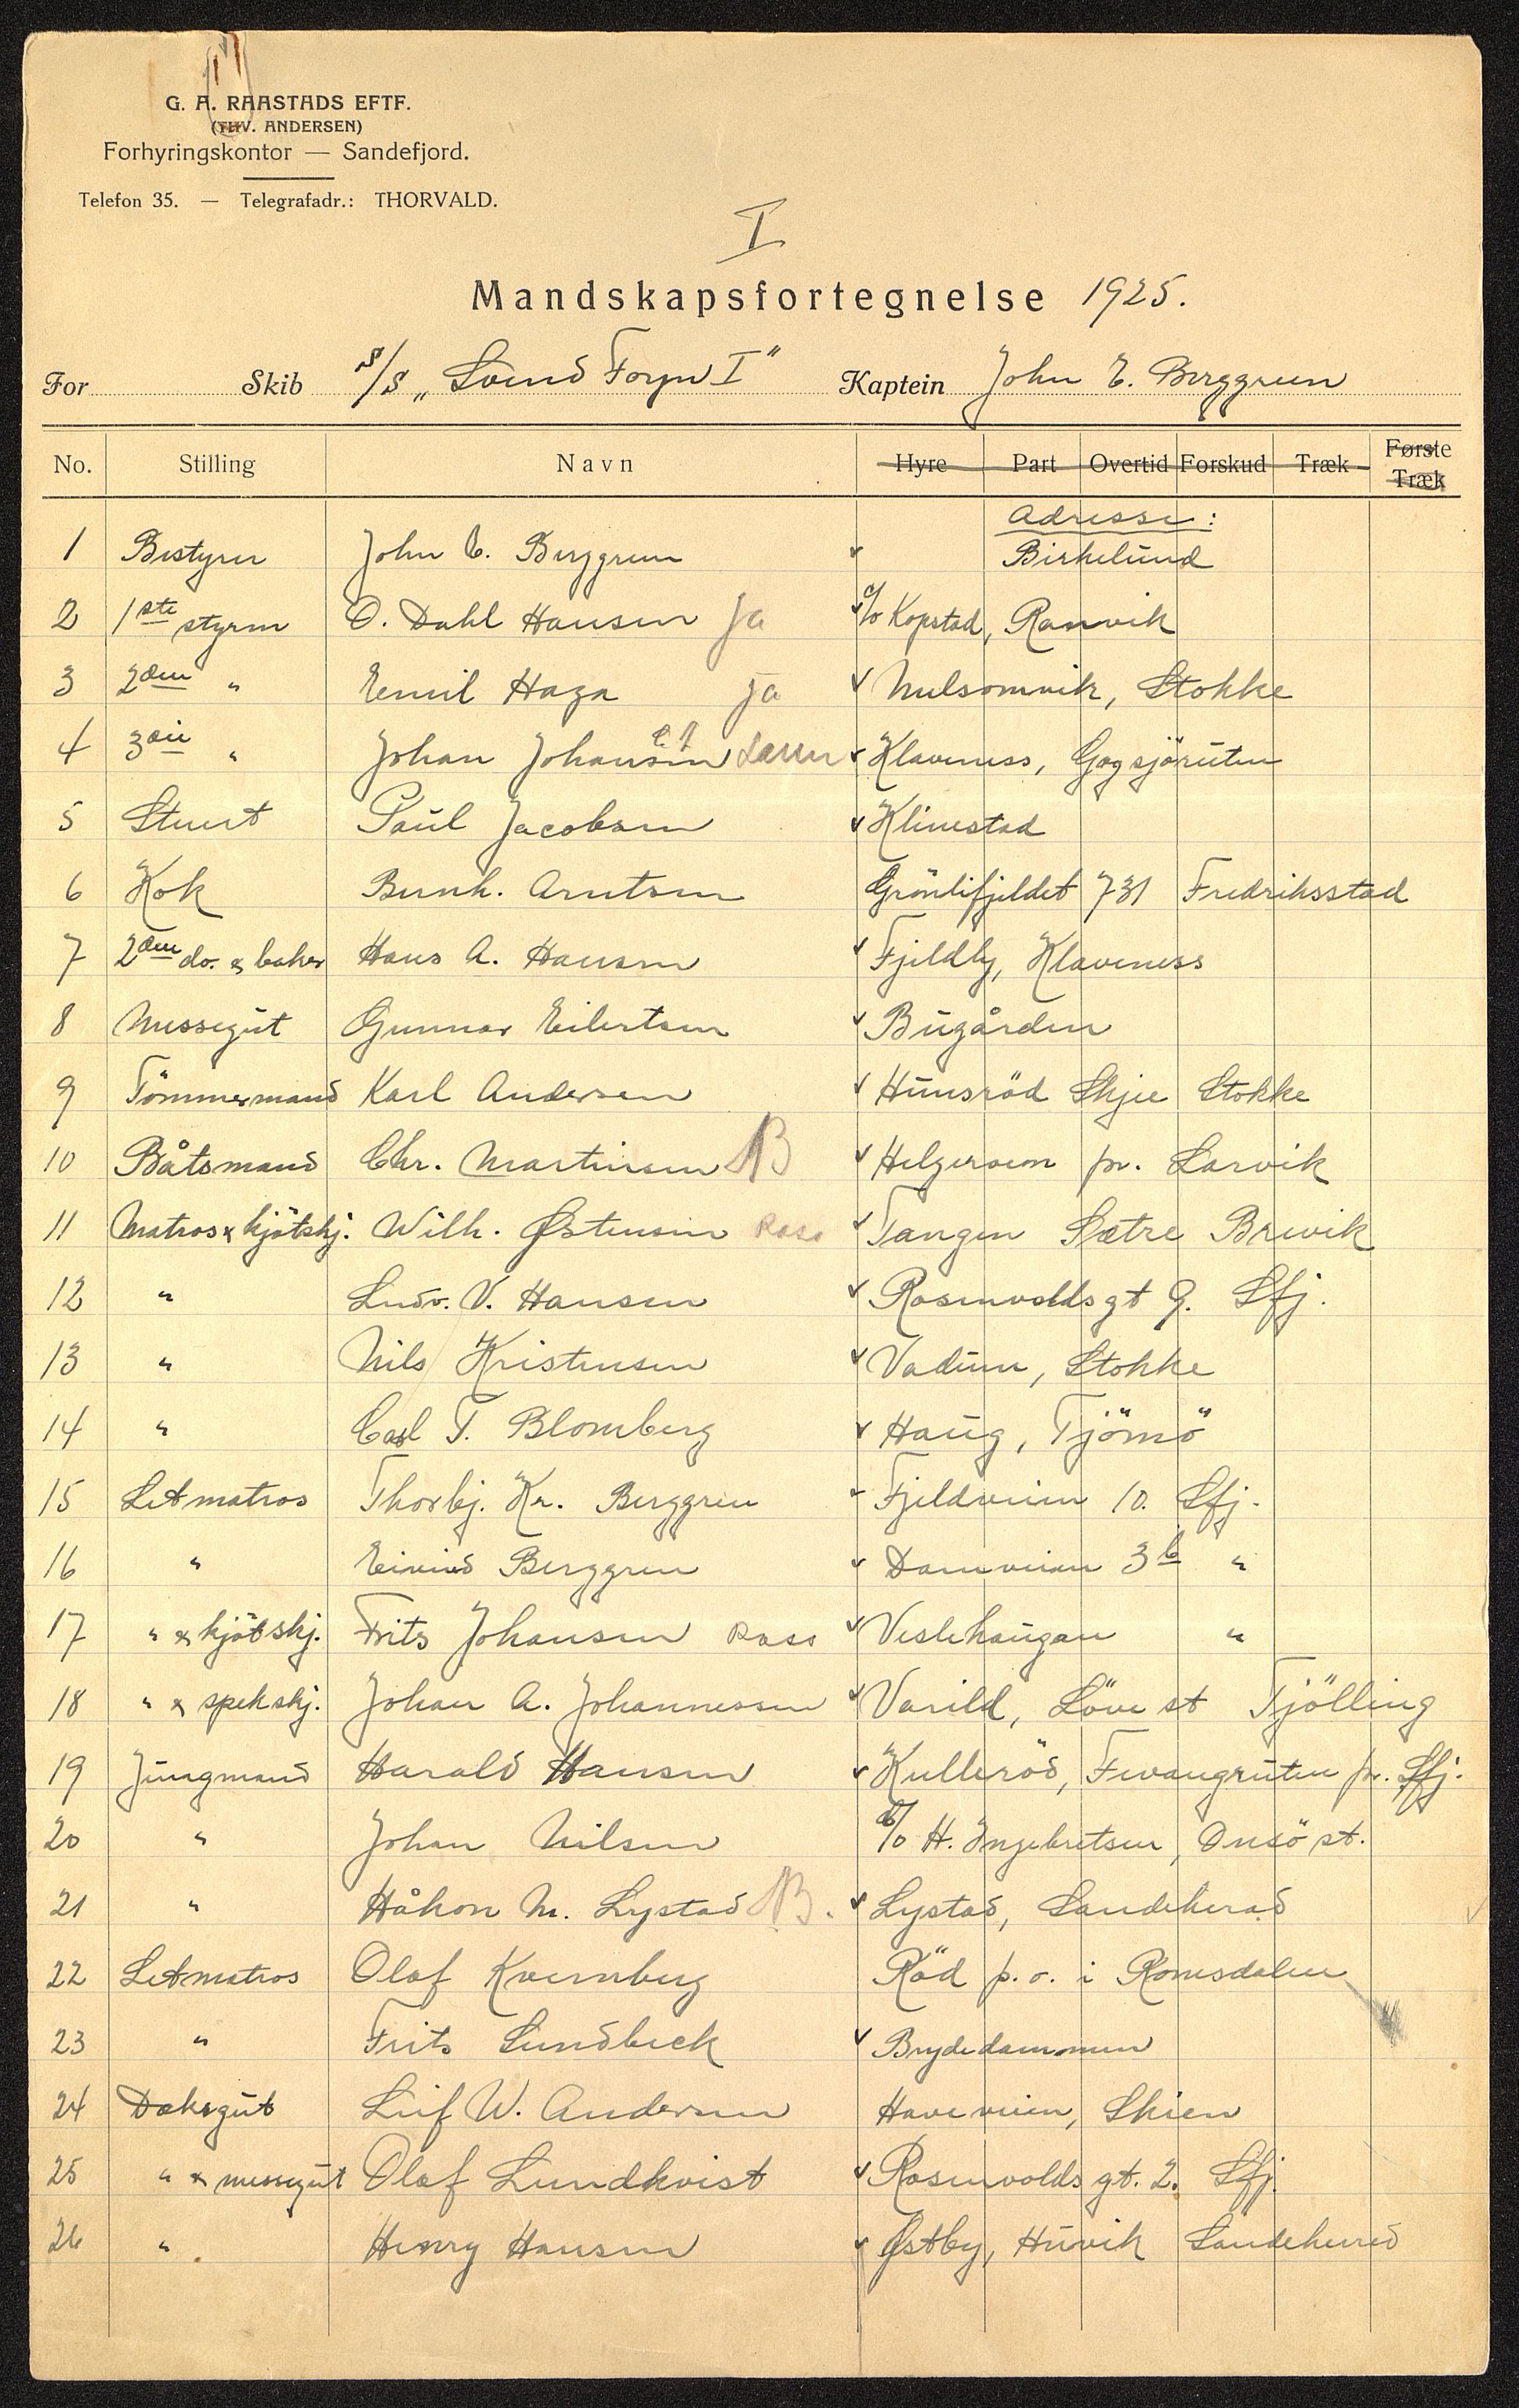 G. A. RAASTADS EFTF.
(THV. ANDERSEN)
Forhyringskontor — Sandefjord.
Telefon 35. — Telegrafadr.: THORVALD.
I
Mandskapsfortegnelse 1925.
For Skib S/S „Svend Foyn I" Kaptein John E. Berggreen
No. Stilling Navn Hyre Part Overtid Forskud Træk Første Træk
Adresse:
1 Bestyrer John E. Berggreen Birkelund
2 1ste styrm O. Dahl Hansen ja c/o Kopstad, Ranvik
3 2den " Emil Haga ja Melsomvik, Stokke
4 3die " Johan Johansen Klaveness, Gogsjöruten
5 Stuert Paul Jacobsen Klinestad
6 Kok Bernh. Arntsen Grönlifjeldet 731 Fredriksstad
7 2den do. & baker Hans A. Hansen Fjeldly, Klaveness
8 Messegut Gunnar Eilertsen Bugården
9 Tömmermand Karl Andersen Hunsröd Skjee Stokke
10 Båtsmand Chr. Martinsen B Helgeroen pr. Larvik
11 Matros & kjötskj. Wilh. Østensen Ross Tangen Sætre Brevik
12 " Ludv. V. Hansen Rosenvoldsgt 9. Sfj.
13 " Nils Kristensen Vadum, Stokke
14 " Carl T. Blomberg Haug, Tjömö
15 Letmatros Thorbj. Kr. Berggren Fjeldveien 10. Sfj.
16 " Eivind Berggren Damveien 3b "
17 " & kjötskj. Frits Johansen Ross Veslehaugan "
18 " & spekskj. Johan A. Johannessen Varild, Löve st Tjölling
19 Jungmand Harald Hansen Kulleröd, Fevangruten pr. Sfj.
20 " Johan Nilsen c/o H. Ingebretsen, Onsö st.
21 " Håkon M. Lystad B. Lystad, Sandeherad
22 Letmatros Olaf Kvernberg Röd p.o. i Romsdalen
23 " Frits Lundbeck Brydedammen
24 Deksgut Leif W. Andersen Haveveien, Skien
25 " & messegut Olaf Lundkvist Rosenvolds gt. 2. Sfj.
26 " Henry Hansen Østby, Huvik Sandeherred